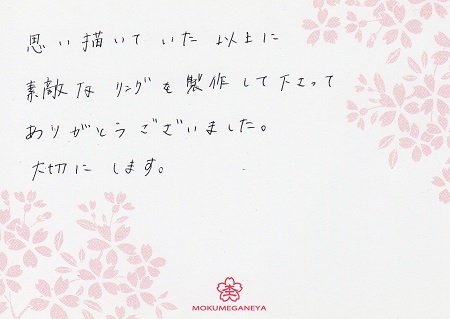 思い描いていた以上に
素敵なリングを製作して下さって
ありがとうございました。
大切にします。
MOKUMEGANEYA